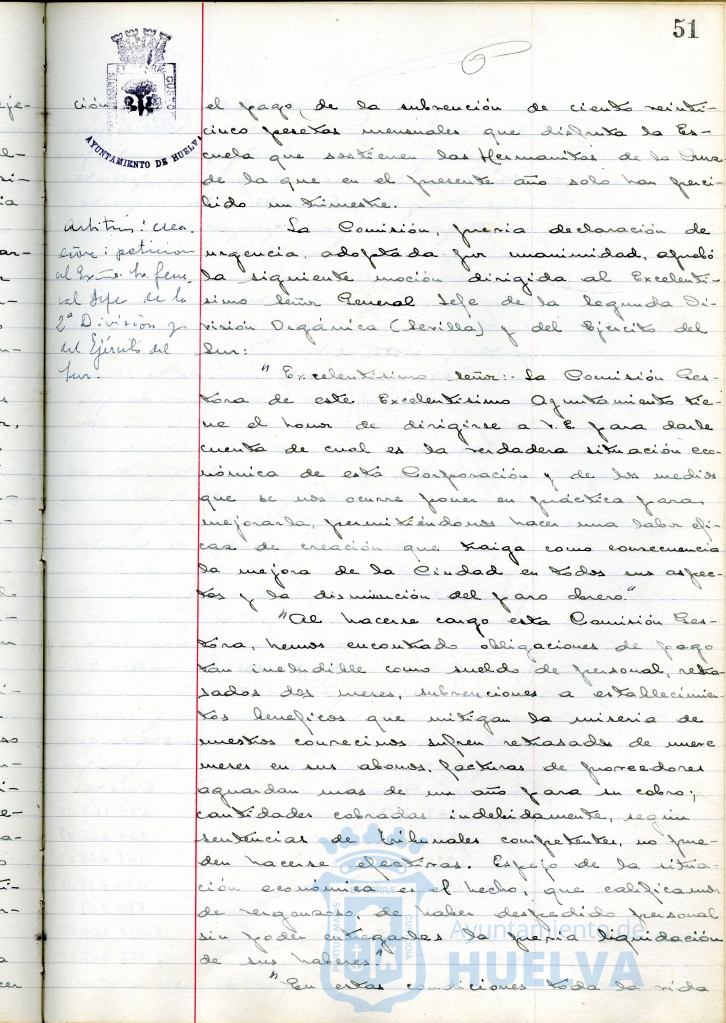 51
ción
AYUNTAMIENTO DE HUELVA
el pago, de la subvención de ciento veinti-
cinco pesetas mensuales que disfruta la Es-
cuela que sostienen las Hermanitas de la Cruz
de la que en el presente año solo han perci-
bido un trimestre.
Arbitrios: crea
ción: peticion
al Exmo. Sr. Gene-
ral Jefe de la
2ª División y
del Ejército del
Sur.
La Comisión, previa declaración de
urgencia, adoptada por unanimidad, aprobó
la siguiente moción dirigida al Excelentí-
simo Señor General Jefe de la Segunda Di-
visión Orgánica (Sevilla) y del Ejército del
Sur:
"Excelentisimo Señor:- La Comisión Ges-
tora de este Excelentisimo Ayuntamiento tie-
ne el honor de dirigirse a V.E para darle
cuenta de cual es la verdadera situación eco-
nómica de esta Corporación y de los medios
que se nos ocurre poner en práctica para
mejorarla, permitiéndonos hacer una labor efi-
caz de creación que traiga como consecuencia
la mejora de la Ciudad en todos sus aspec-
tos y la disminución del paro obrero."
"Al hacerse cargo esta Comisión Ges-
tora, hemos encontrado obligaciones de pago
tan ineludible como sueldo de personal, retra-
sados dos meses, subvenciones a establecimien-
tos beneficos que mitigan la miseria de
nuestros convecinos sufren retrasados de nueve
meses en sus abonos. facturas de proveedores
aguardan mas de un año para su cobro;
cantidades cobradas indebidamente, según
sentencias de Tribunales competentes, no pue-
den hacerse efectivas. Espejo de la situa-
ción económica es el hecho, que calificamos
de vergonzoso, de haber despedido personal
sin poder entregarles la previa liquidación
de sus haberes."
"En estas condiciones toda la vida
Ayuntamiento de
HUELVA